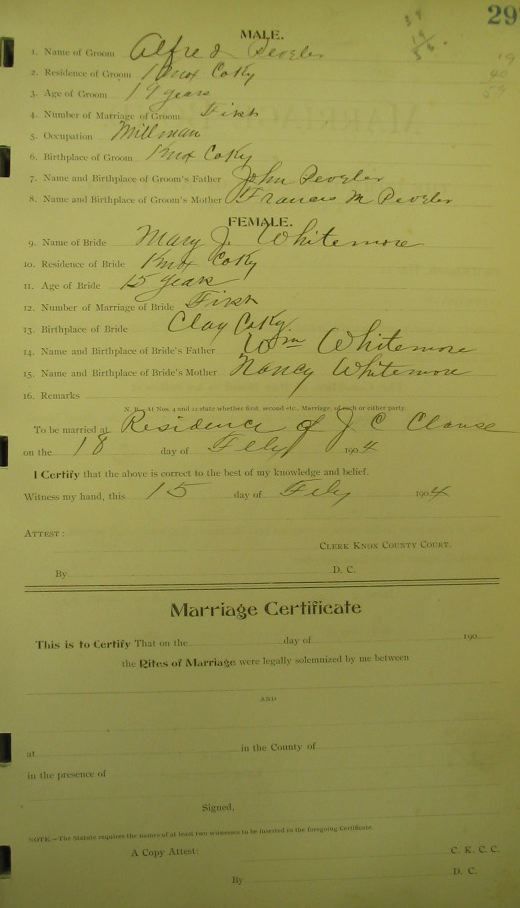 297
MALE.
1. Name of Groom Alfred Peveler
2. Residence of Groom Knox Co Ky
3. Age of Groom 19 years
4. Number of Marriage of Groom First
5. Occupation Millman
6. Birthplace of Groom Knox Co Ky
7. Name and Birthplace of Groom's Father John Peveler
8. Name and Birthplace of Groom's Mother Francis M Peveler
FEMALE.
9. Name of Bride Mary J. Whitemore
10. Residence of Bride Knox Co Ky
11. Age of Bride 15 years
12. Number of Marriage of Bride First
13. Birthplace of Bride Clay Co Ky.
14. Name and Birthplace of Bride's Father Wm Whitemore
15. Name and Birthplace of Bride's Mother Nancy Whitemore
16. Remarks
N. B. At Nos. 4 and 12 state whether first, second etc., Marriage, of each or either party.
To be married at Residence of J C Clouse
on the 18 day of Feby 1904
I Certify that the above is correct to the best of my knowledge and belief.
Witness my hand, this 15 day of Feby 1904
ATTEST:
CLERK KNOX COUNTY COURT.
By D. C.
Marriage Certificate
This is to Certify That on the day of 190
the Rites of Marriage were legally solemnized by me between
AND
at in the County of
in the presence of
Signed,
NOTE.—The Statute requires the names of at least two witnesses to be inserted in the foregoing Certificate.
A Copy Attest: C. K. C. C.
By D. C.